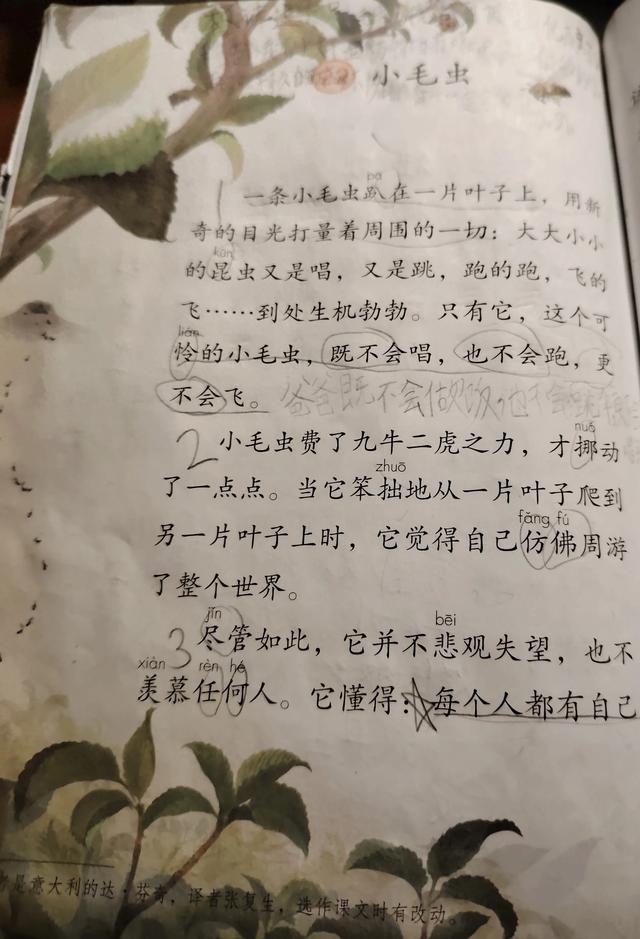 小毛虫
pā
一条小毛虫趴在一片叶子上，用新
奇的目光打量着周围的一切：大大小小
kūn
的昆虫又是唱，又是跳，跑的跑，飞的
飞……到处生机勃勃。只有它，这个可
lián
怜的小毛虫，既不会唱，也不会跑，更
不会飞。爸爸既不会做饭，也不会跳
2 小毛虫费了九牛二虎之力，才挪动
nuó
zhuō
了一点点。当它笨拙地从一片叶子爬到
fǎng fú
另一片叶子上时，它觉得自己仿佛周游
了整个世界。
jǐn bēi
3 尽管如此，它并不悲观失望，也不
xiàn rèn hé
羡慕任何人。它懂得：☆每个人都有自己
者是意大利的达·芬奇，译者张复生，选作课文时有改动。